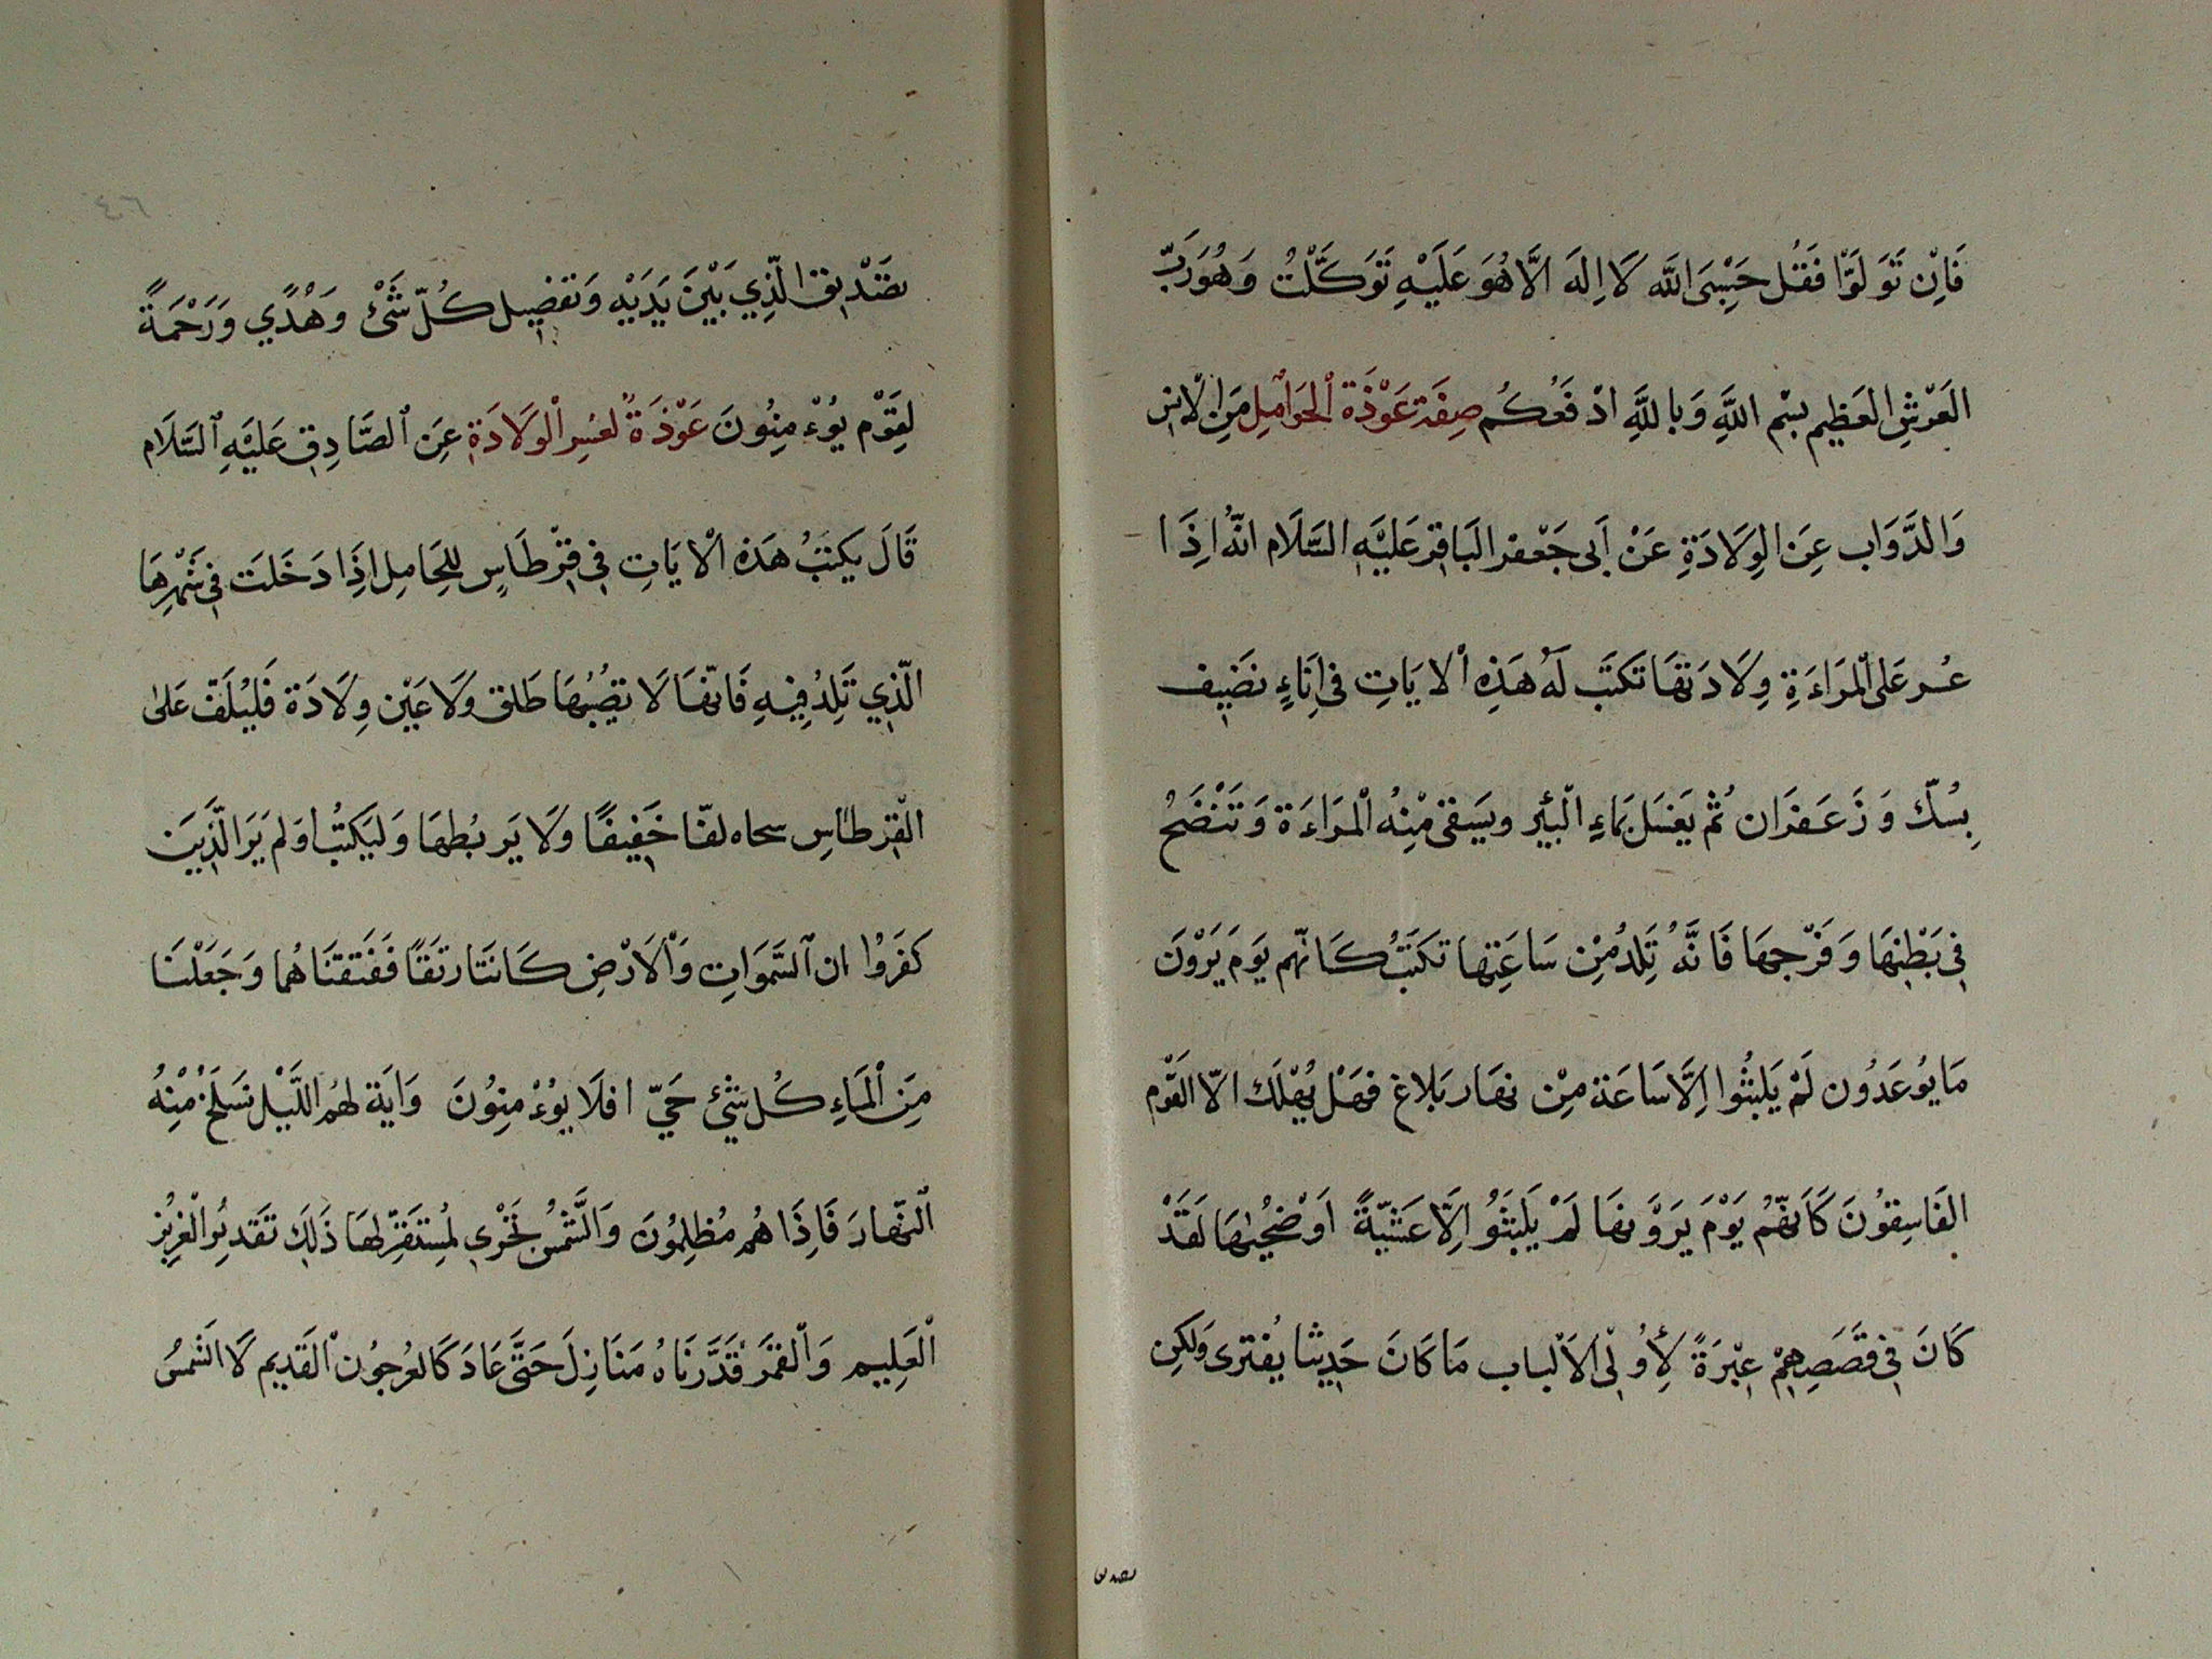 فَاِنْ تَوَلَّوْا فَقُل حَسْبِیَ اللّٰه لَا اِلٰهَ الَّا هُوَ عَلَيْهِ تَوَكَّلْتُ وَهُوَ رَبّ
العَرْشِ العَظِيم بسْم اللَّهِ وَبِاللَّهِ ادْفَعُكُم صِفَة عَوْذَة الْحَوَامِلِ مِنَ الْاِنسِ
وَالدَّوَاب عِنَ الوِلَادَةِ عَنْ اَبی جَعْفر البَاقِر عَلَيْهِ السَّلَام انّهُ اِذَا
عُسر عَلَى الْمَراءَةِ وِلَادَتهَا تَكتَب لَهُ هَذِهِ الْايَاتِ فی اِنَاءٍ نضَيِف
بِسُكّ وَزَعَفَرَان ثُمْ يَغسَل بَماءِ الْبئِر ويَسقیٰ مْنِهُ الْمَراءَة وَتَنْضَحُ
فِی بَطْنِهَا وَفَرْجهَا فَانَّهُ تَلِدُ مِنْ سَاعَتِهَا تكَتَبُ كَانّهم يَوَم يَرَوْنَ
مَا يوُعَدُون لَمْ يَلبثُوا اِلَّا سَاعَة مِنْ نهَار بَلاغ فهَلْ يُهْلَك الّا القَوْم
الفَاسِقوُنَ كَاَنّهُمْ يَوْمَ يَرَوَنهَا لَمْ يَلَبثَوُ اِلَّا عَشيّةً اَوْ ضُحيٰهَا لَقَدْ
كَانَ فِی قَصَصِهِمْ عِبْرَةً لِأُوْلِی الاَلْباب مَا كَانَ حَدِيثا يُفترى وَلكِن
تصديق
٤٦
تصَْدِيق الّذِي بَيْنَ يَدَيْهِ وَتفضِيل كُلّ شَیْ وَهُدًي وَرَحْمَةً
لِقَوْم يُوْءمِنُونَ عَوْذَةُ لعُسِر الْوِلَادَةِ عَن الصَّادِقِ عَليْهِ السَّلَام
قَالَ يكتَبُ هَذه الْايَاتِ فِی قِرْطَاسٍ لِلحَامِل اِذَا دَخَلَت فِی شهْرِهَا
الّذِي تَلِدُ فِيهِ فَانّهَا لَا تصِيُبهَا طَلق وَلَا عَيْن وِلَادَة فَليُلَفّ عَلیٰ
الْقِرطَاسِ سحاه لفّا خَفِيفًا وَلَا يَربُطهَا وَليَكتُبْ اَوَلم يَرَ الَّذِينَ
كَفَرَوُا ان السَّمَوَاتِ وَاْلَارْضِ كَانَتَا رتَقًا فَفَتَقنَاهُما وَجَعَلْنَا
مِنَ الْمَاءِ كُل شَیْئ حَيّ افلَا يوُءْمِنوُنَ وَايَة لهُم اللّيْل نسَلخُ مْنِهُ
الْنّهارَ فَاِذَا هُم مُظلِمُونَ وَالَّشمْسُ تجَرْی لِمُستَقَرّ لهَا ذَلِك تَقديُر الْعَزِيْز
اْلعَلِيم وَالْقمَرَ قَدَّرنَاهُ مَنَازِلَ حَتَّی عَادَ كَالعُرجُون الْقَديم لَا الشَّمسُ